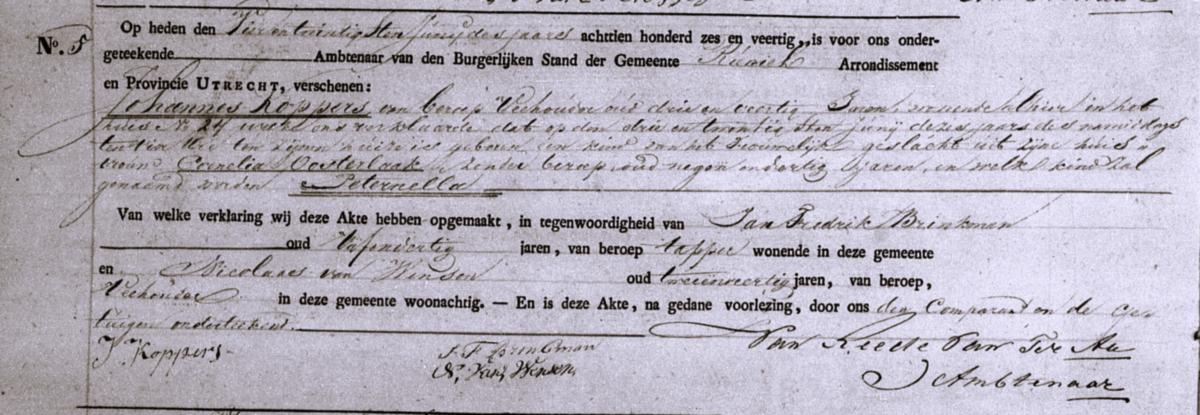 No. 5
Op heden den Vier en twintigsten Junij des jaars achttien honderd zes en veertig, is voor ons onder-
geteekende Ambtenaar van den Burgerlijken Stand der Gemeente Ruwiel Arrondissement
en Provincie UTRECHT, verschenen:
Johannes Koppers van beroep Veehouder oud drie en veertig Jaren wonende alhier in het
huis No 24 welke ons verklaarde dat op den drie en twintigsten Junij dezes jaars des namiddags
ten vier Ure ten zijnen huize is geboren een kind van het vrouwelijk geslacht uit zijne huis
vrouw Cornelia Oosterlaak, zonder beroep, oud negen en dertig Jaren, en welk kind zal
genaamd worden Peternella
Van welke verklaring wij deze Akte hebben opgemaakt, in tegenwoordigheid van Jan Fredrik Brinkman
oud vijfendertig jaren, van beroep tapper wonende in deze gemeente
en Nicolaas van Winsen oud tweeenveertig jaren, van beroep,
Veehouder in deze gemeente woonachtig. — En is deze Akte, na gedane voorlezing, door ons den Comparant en de ge-
tuigen onderteekend.
J Koppers
J. F. Brinkman
N. Van Winsen
Van Reede Van Ter Aa
Ambtenaar